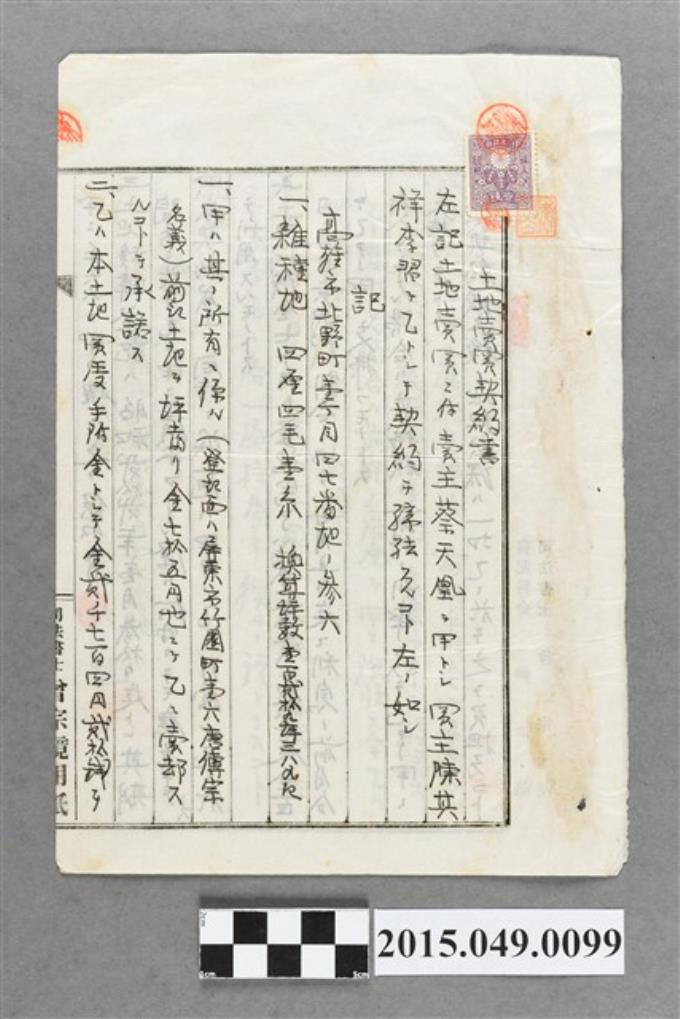 土地売買契約書
左記土地売買ニ付売主蔡天凰ヲ甲トシ買主陳其
祥李習ヲ乙トシテ契約ヲ締結スルコト左ノ如シ
記
高雄市北野町壹丁目四七番地ノ参六
一、雑種地 四厘四毛壹糸 換算坪数壹百貳拾九坪三八
一、甲ハ其ノ所有ニ係ル(登記面ハ屏東市竹園町壹六唐傳宗
名義)前記土地ヲ坪当リ金七拾五円也ニテ乙ニ売却ス
ルコトヲ承諾ス
二、乙ハ本土地買受手附金トシテ金貳千七百四円貳拾銭ヲ
司法書士 曾宗鏡用紙
2cm
0cm
5cm
2015.049.0099